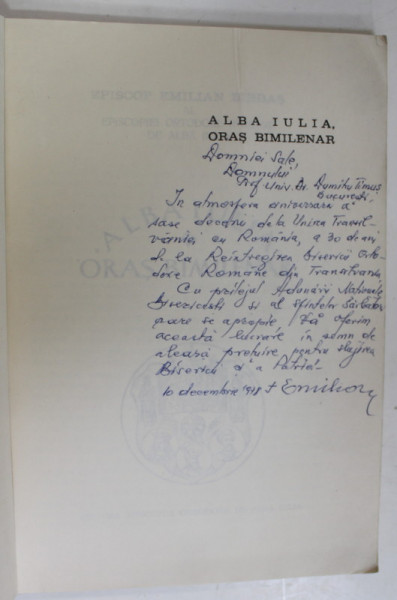 ALBA IULIA,
ORAȘ BIMILENAR
Domniei Sale,
Domnului
Prof. Univ. Dr. Dumitru
București,
În atmosfera aniversară a
șase decenii de la Unirea Transil-
vaniei cu România, a 30 de ani
de la Reîntregirea Bisericii Orto-
doxe Române din Transilvania
Cu prilejul Adunării Naționale
Bisericești și al sfintelor Sărbători
care se apropie, Vă oferim
această lucrare în semn de
aleasă prețuire pentru slujirea
Bisericii și a Patriei.
10 decembrie 1978 † Emilian